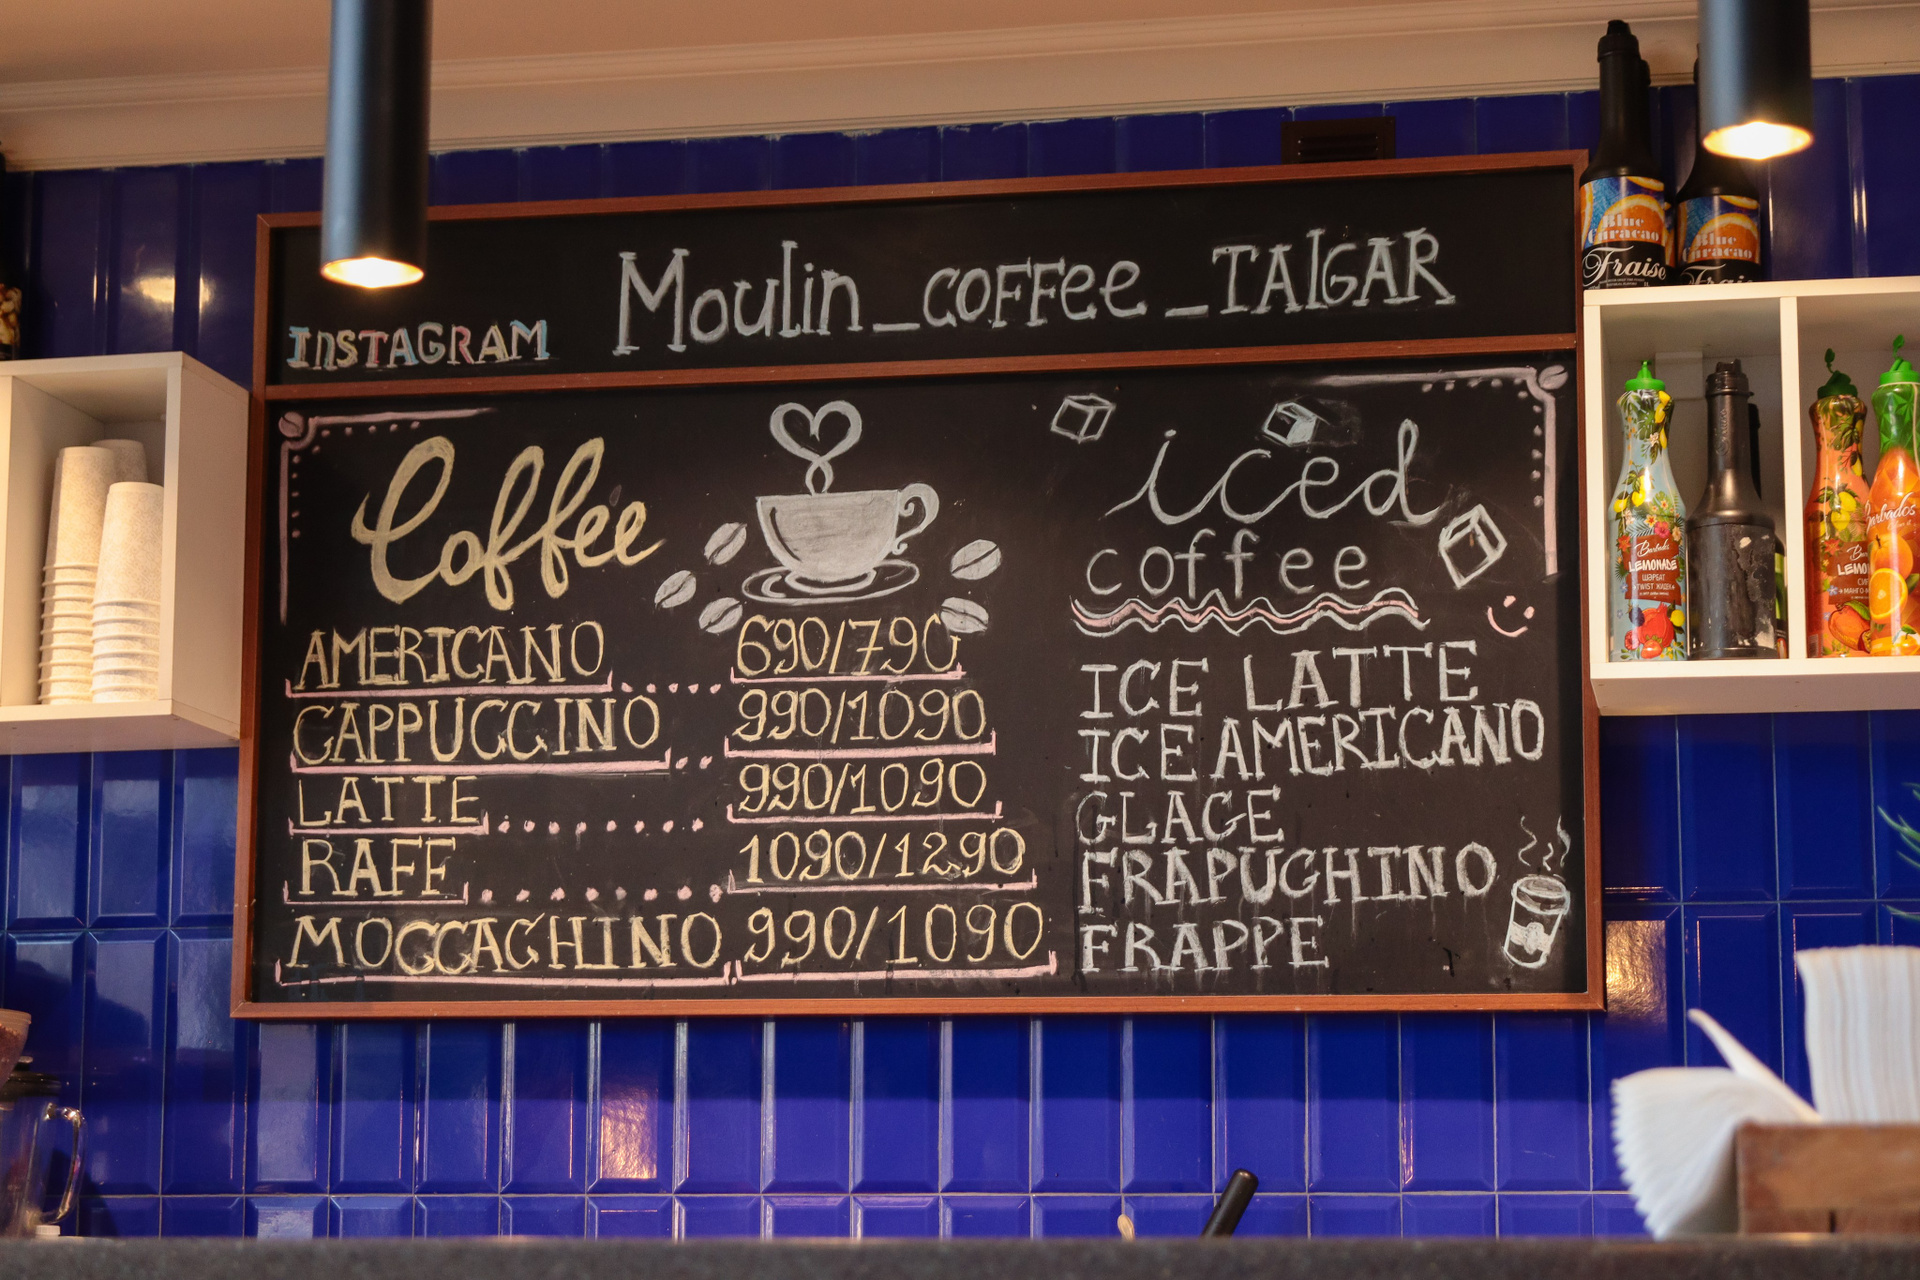 Moulin_coffee_TAlGAR
InSTAGRAM
Coffee
AMERICANO 690/790
CAPPUCCINO 990/1090
LATTE 990/1090
RAFF 1090/1290
MOCCACHINO 990/1090
iced
coffee
ICE LATTE
ICE AMERICANO
GLACE
FRAPUCHINO
FRAPPE
Blue
Curacao
Fraise
Blue
Curacao
LEMONADE
ШӘРБАТ
Barbados